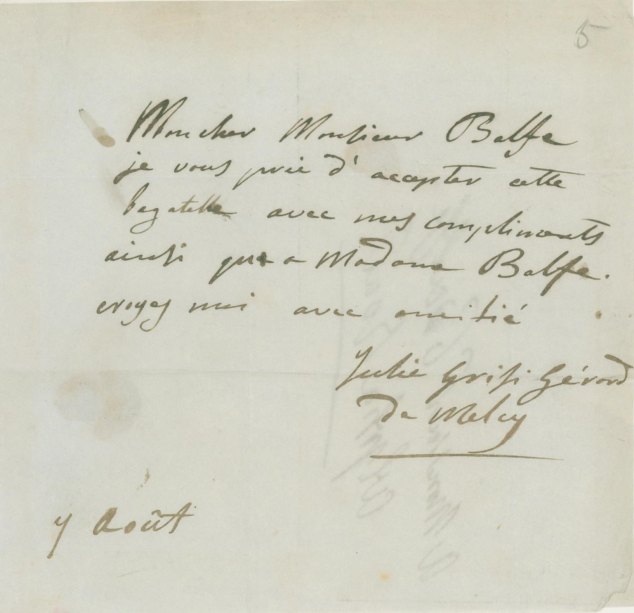 5
Mon cher Monsieur Balfe
je vous prie d'accepter cette
bagatelle avec mes compliments
ainsi qu'a Madame Balfe.
croyez moi avec amitié
Julie Grisi Gérard
De Melcy
7 Août